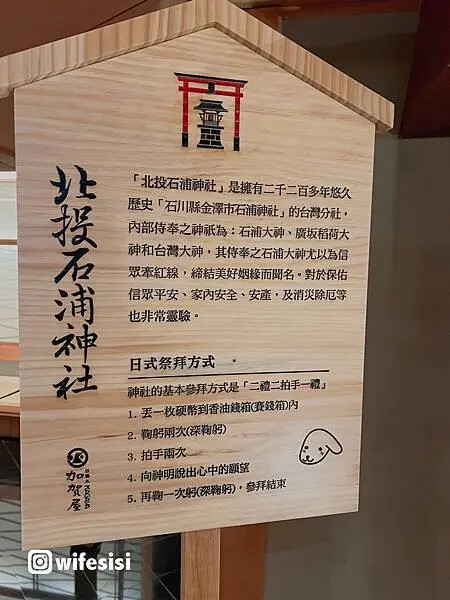 北投石浦神社
「北投石浦神社」是擁有二千二百多年悠久
歷史「石川縣金澤市石浦神社」的台灣分社，
內部侍奉之神祇為：石浦大神、廣坂稻荷大
神和台灣大神，其侍奉之石浦大神尤以為信
眾牽紅線，締結美好姻緣而聞名。對於保佑
信眾平安、家內安全、安產，及消災除厄等
也非常靈驗。
日式祭拜方式
神社的基本參拜方式是「二禮二拍手一禮」
1. 丟一枚硬幣到香油錢箱(賽錢箱)內
2. 鞠躬兩次(深鞠躬)
3. 拍手兩次
4. 向神明說出心中的願望
5. 再鞠一次躬(深鞠躬)，參拜結束
日勝生
KAGAYA
加賀屋
wifesisi